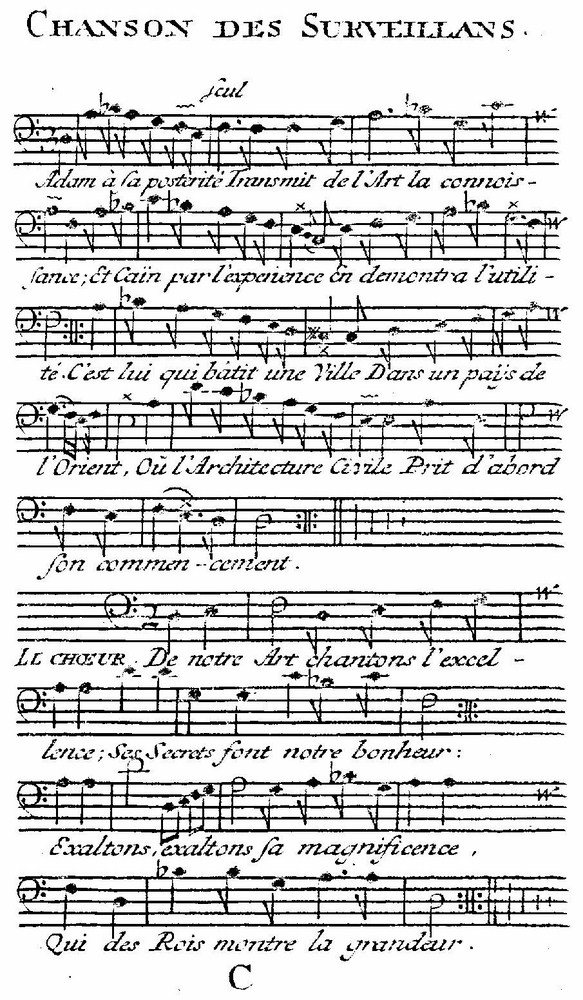 CHANSON DES SURVEILLANS.
seul
Adam à sa posterité Transmit de l'Art la connois-
sance; Et Caïn par l'experience En demontra l'utili-
té. C'est lui qui bâtit une Ville Dans un païs de
l'Orient, Où l'Architecture Civile Prit d'abord
son commen--cement.
LE CHŒUR. De notre Art chantons l'excel-
lence; Ses Secrets font notre bonheur:
Exaltons, exaltons sa magnificence,
Qui des Rois montre la grandeur.
C